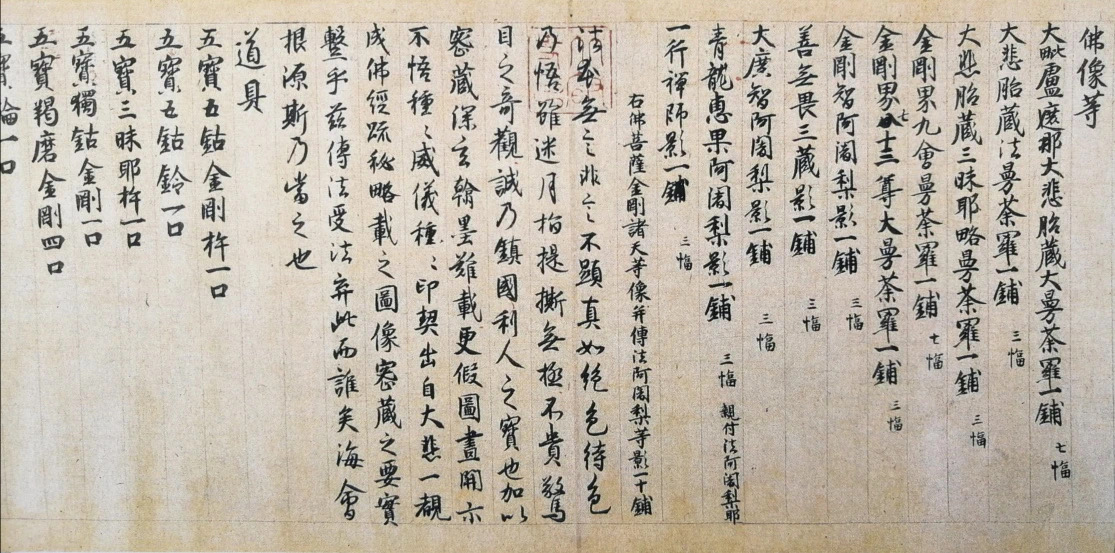 佛像等
大毗盧遮那大悲胎藏大曼荼羅一鋪 七幅
大悲胎藏法曼荼羅一鋪 三幅
大悲胎藏三昧耶略曼荼羅一鋪 三幅
金剛界九會曼荼羅一鋪 七幅
金剛界八十三尊大曼荼羅一鋪 三幅
金剛智阿闍梨影一鋪 三幅
善無畏三藏影一鋪 三幅
大廣智阿闍梨影一鋪 三幅
青龍惠果阿闍梨影一鋪 三幅 親付法阿闍梨耶
一行禪師影一鋪 三幅
右佛菩薩金剛諸天等像并傳法阿闍梨等影一十鋪
法本無言非言不顯真如絕色待色
乃悟雖迷月指提撕無極不貴驚
目之奇觀誠乃鎮國利人之寶也加以
密藏深玄翰墨難載更假圖畫開示
不悟種々威儀種々印契出自大悲一覩
成佛經疏秘略載之圖像密藏之要實
繫乎茲傳法受法弃此而誰矣海會
根源斯乃當之也
道具
五寶五鈷金剛杵一口
五寶五鈷鈴一口
五寶三昧耶杵一口
五寶獨鈷金剛一口
五寶羯磨金剛四口
五寶輪一口